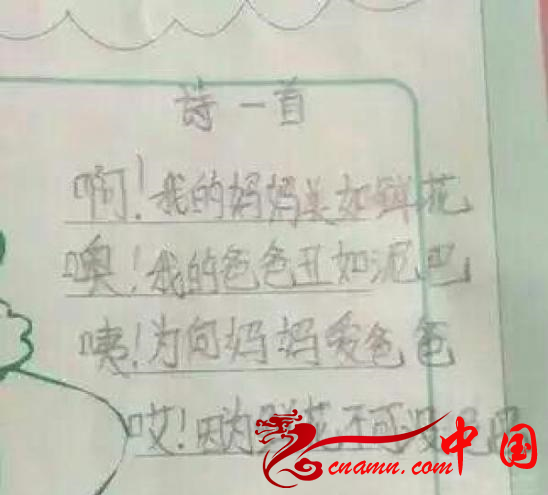 诗一首
啊!我的妈妈美如鲜花
噢!我的爸爸丑如泥巴
咦!为何妈妈爱爸爸
哎!因为鲜花不可没
中国
cnamn.com